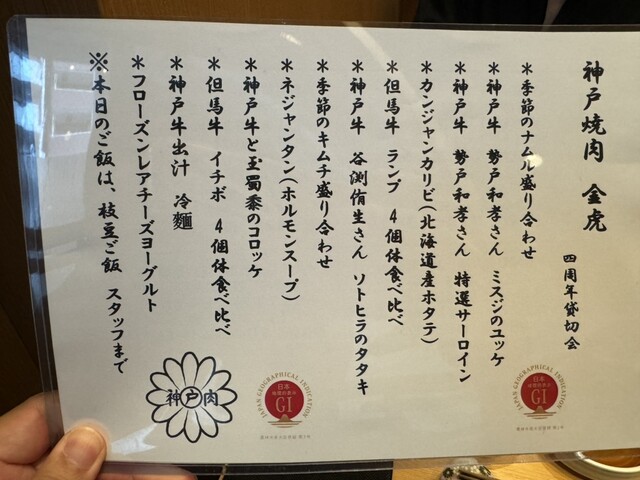 神戸焼肉 金虎
四周年貸切会
＊季節のナムル盛り合わせ
＊神戸牛 勢戸和孝さん ミスジのユッケ
＊神戸牛 勢戸和孝さん 特選サーロイン
＊カンジャンカリビ(北海道産ホタテ)
＊但馬牛 ランプ 4個体食べ比べ
＊神戸牛 谷渕侑生さん ソトヒラのタタキ
＊季節のキムチ盛り合わせ
＊ネジャンタン(ホルモンスープ)
＊神戸牛と玉蜀黍のコロッケ
＊但馬牛 イチボ 4個体食べ比べ
＊神戸牛出汁 冷麺
＊フローズンレアチーズヨーグルト
※本日のご飯は、枝豆ご飯 スタッフまで
神戸肉
JAPAN GEOGRAPHICAL INDICATION
日本
地理的表示
GI
JAPAN GEOGRAPHICAL INDICATION
日本
地理的表示
GI